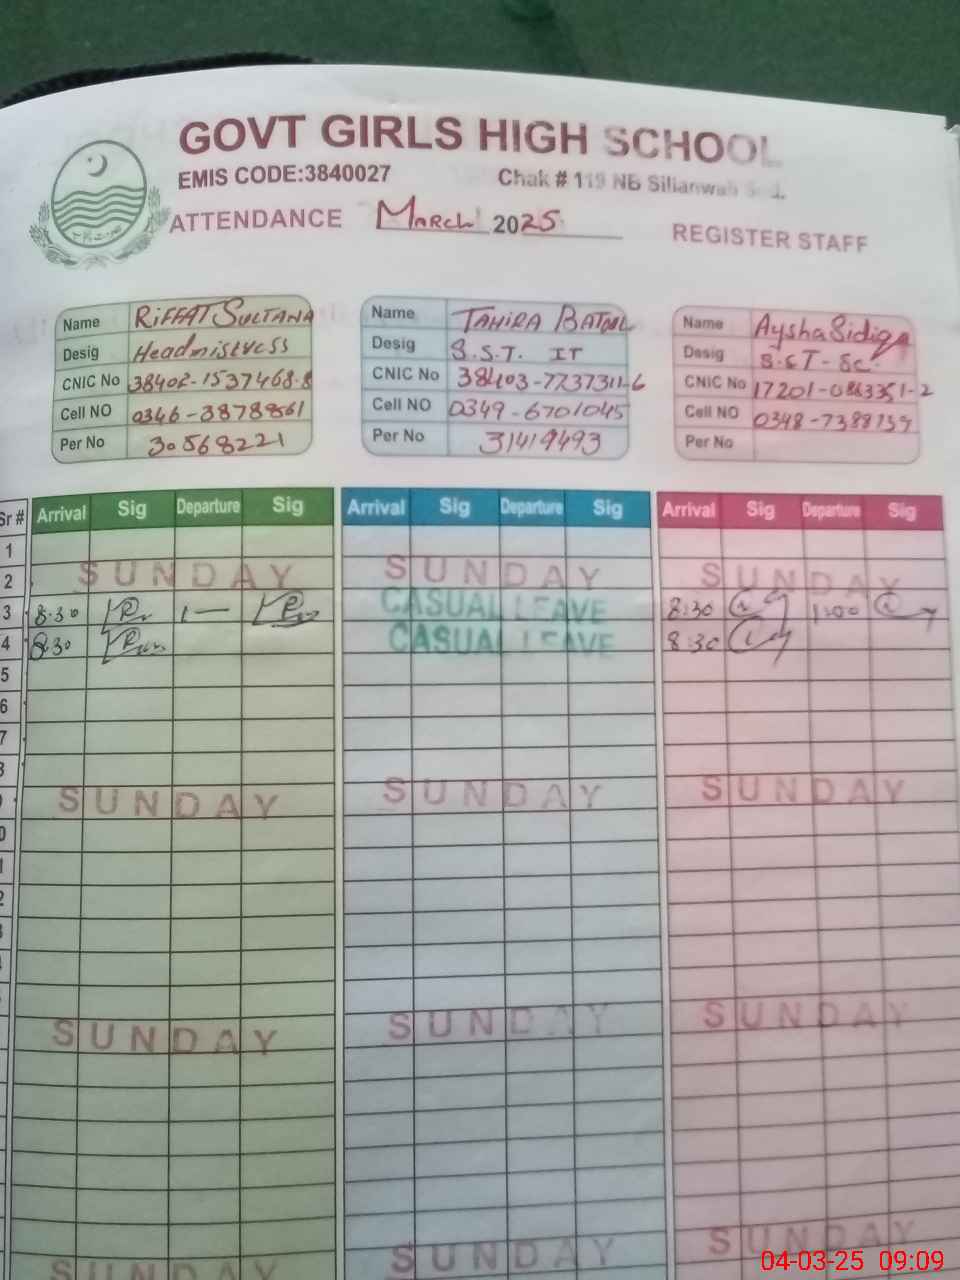 GOVT GIRLS HIGH SCHOOL
EMIS CODE:3840027
Chak # 119 NB Sillanwali
ATTENDANCE March 2025 REGISTER STAFF
Name RIFFAT SULTANA
Desig Headmistress
CNIC No 38402-1537468-8
Cell NO 0346-3878861
Per No 30568221
Name TAHIRA BATOOL
Desig S.S.T. IT
CNIC No 38403-7737311-6
Cell NO 0349-6701045
Per No 31419493
Name Aysha Sidiqa
Desig S.S.T-SC.
CNIC No 17201-0863351-2
Cell NO 0348-7388759
Per No
Sr # Arrival Sig Departure Sig Arrival Sig Departure Sig Arrival Sig Departure Sig
1
2 SUNDAY SUNDAY SUNDAY
3 8:30 1 — CASUAL LEAVE 8:30 1:00
4 8:30 CASUAL LEAVE 8:30
5
6
7
8
9 SUNDAY SUNDAY SUNDAY
0
1
2
3
SUNDAY SUNDAY SUNDAY
SUNDAY SUNDAY SUNDAY
04-03-25 09:09